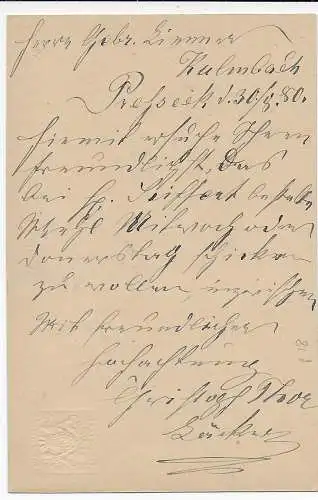 Herrn Gebr. Liemer
Kulmbach
Presseck d. 30./8. 80.
Hiemit ersuche Ihnen
freundlichst, das
bei H. Seiffert bestelte
Mehl Mitwoch oder
Donerstag schicken
zu wollen, inzwischen
Mit freundlicher
Hochachtung
Christoph Thor
Bäcker